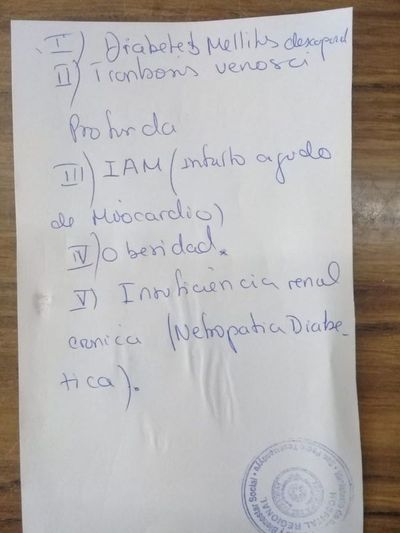 I) Diabetes Mellitus
II) Trombosis venosa
Profunda
III) IAM (infarto agudo
de Miocardio)
IV) Obesidad.
V) Insuficiencia renal
cronica (Nefropatia Diabe-
tica).
Bienestar Social
HOSPITAL REGIONAL